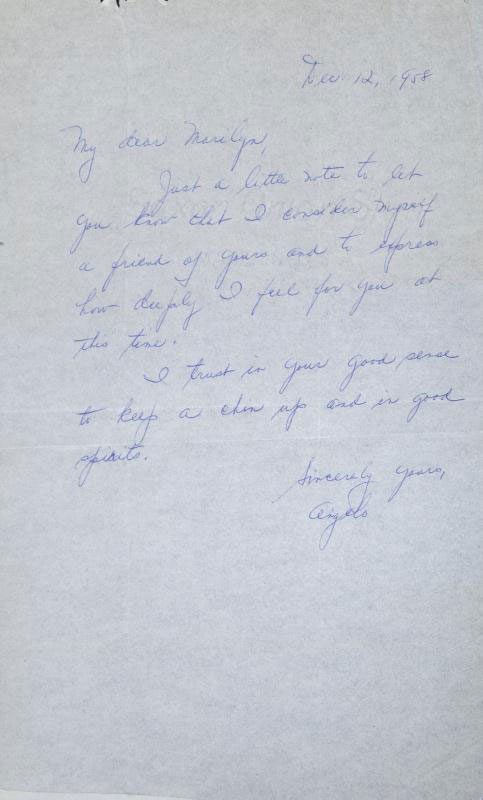 Dec. 12, 1958
My dear Marilyn,
Just a little note to let
you know that I consider myself
a friend of yours and to express
how deeply I feel for you at
this time.
I trust in your good sense
to keep a chin up and in good
spirits.
Sincerely yours,
Angelo